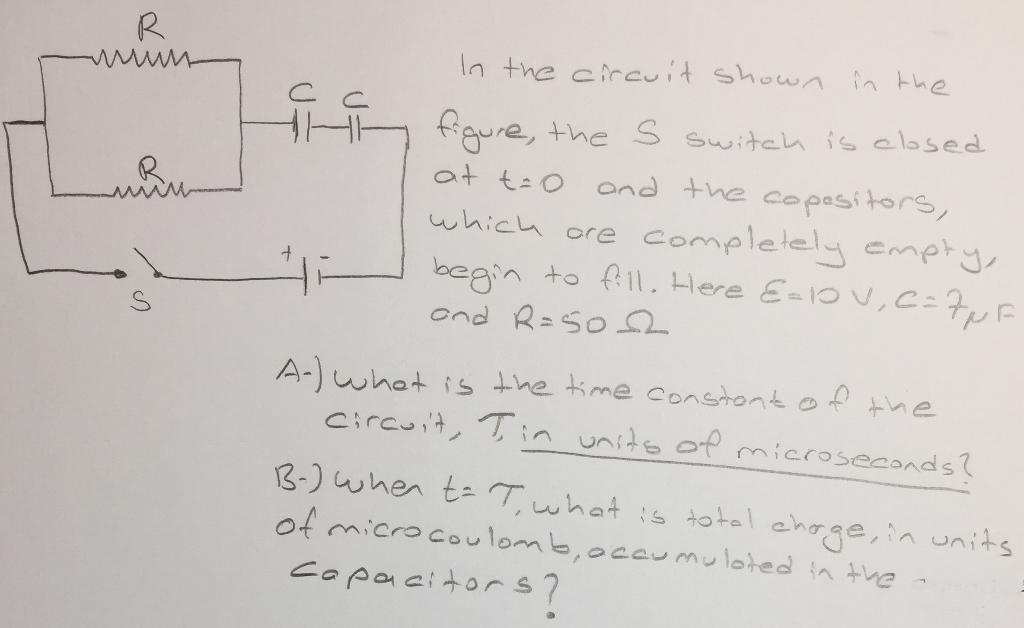 R
C C
R
+ -
S
In the circuit shown in the
figure, the S switch is closed
at t=0 and the capasitors,
which are completely empty,
begin to fill. Here Ɛ=10 V, C=7μF
and R=50 Ω
A-) What is the time constant of the
circuit, T, in units of microseconds?
B-) When t= T, what is total charge, in units
of microcoulomb, accumulated in the
capacitors?